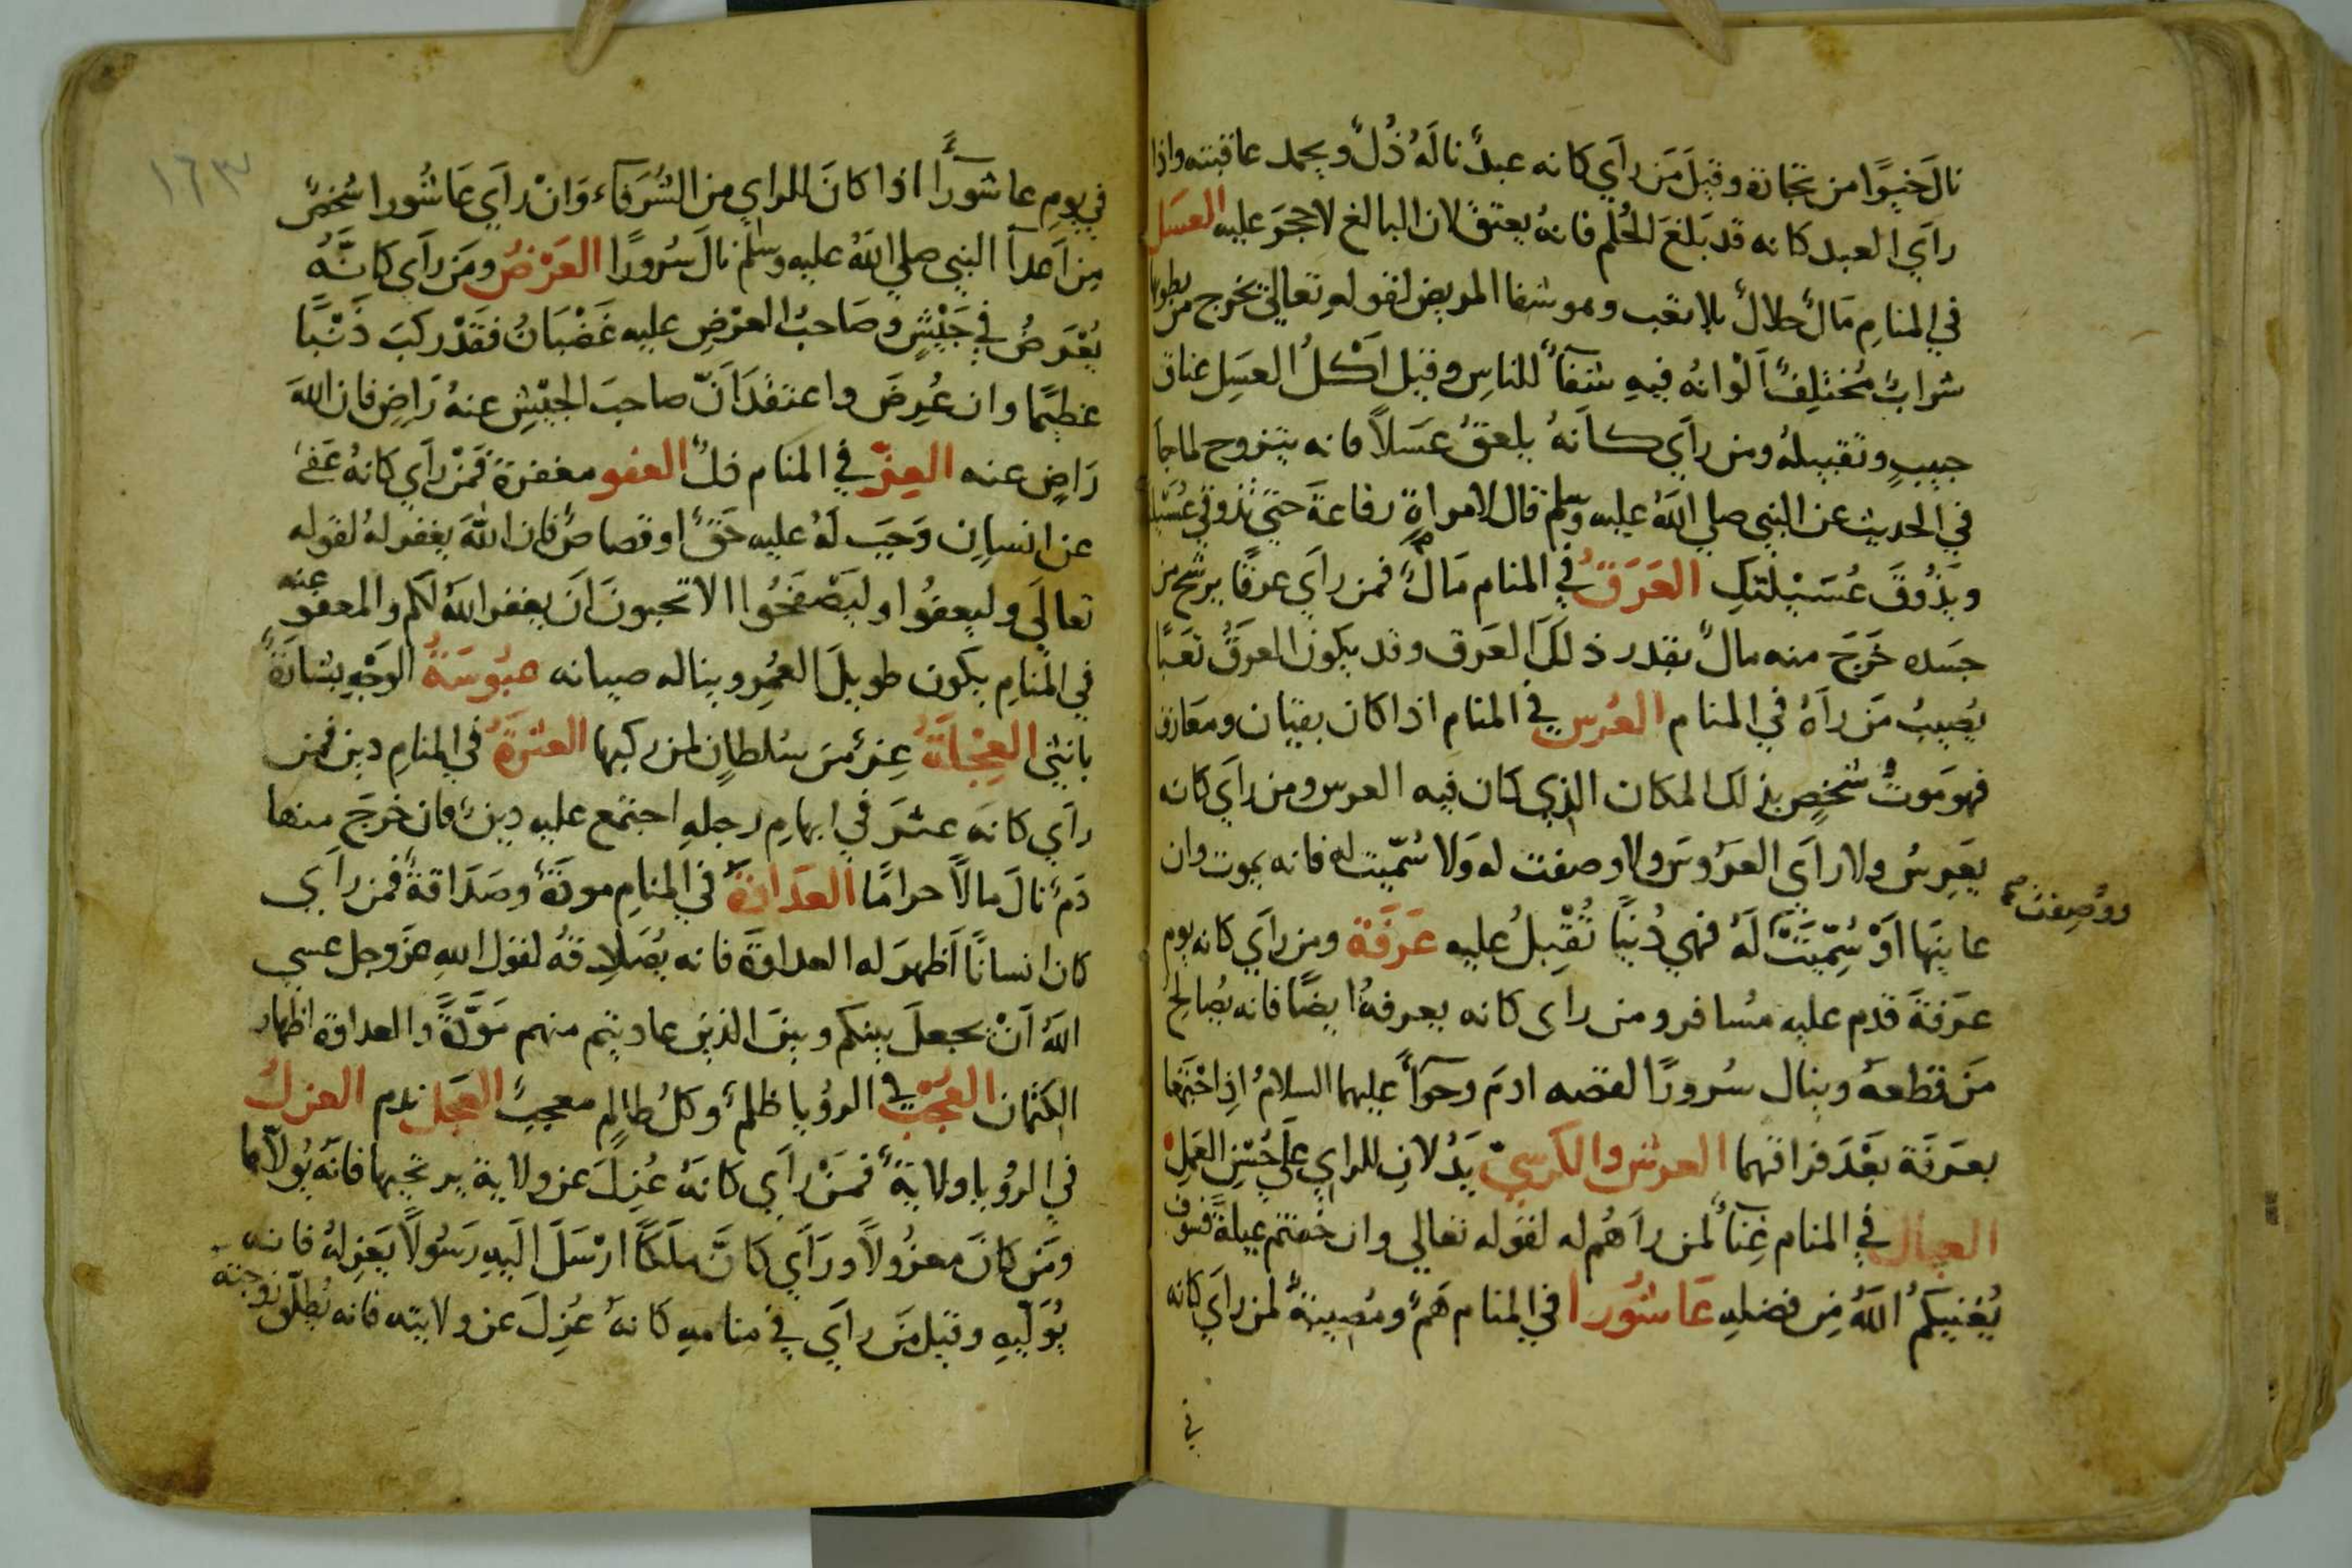 نالَ خيرًا من تجارة وقيلَ مَن رأي كانه عبدٌ نالَهُ ذُلٌ ويحمد عاقبته واذا
رأي العبد كانه قد بَلَغَ الحُلم فانهُ يعتق لان البالغ لا حجرَ عليه العسَل
في المنامِ مَالٌ حلالٌ بلا تعب وهو شفا المريض لقولهِ تعالي يخرج من بطونها
شرابٌ مُختَلِفٌ ألْوانُه فيهِ شفآءٌ للناسِ وقيل أكلُ العسَلِ عناق
حبيبٍ وتقبيلهُ ومن رأي كانهُ يلعقُ عسَلاً فانه يتزوج لما جا
في الحديث عن النبي صلي اللهُ عليه وسلم قال لامراةِ رفاعةَ حتي تذوقي عُسَيلته
ويَذُوقَ عُسَيْلتَكِ العَرَقُ في المنام مَالٌ فمن رأي عرقًا يرشح من
جسَده خَرَجَ منه مالٌ بقدر ذلكَ العَرق وقد يكون العرقُ تَعَبًا
يُصِيبُ مَن رآهُ في المنام العُرس في المنام اذا كان بقيان ومعَازف
فهو مَوتُ شخصٍ بذلك المكان الذي كان فيه العرس ومن رأي كانه
يعَرِسُ ولا رأي العرَوسَ ولا وصفت له وَلا سُمّيت له فانه يموت وان
عاينَها اوْ سُمّيَتْ لَهُ فهي دُنيًا تُقْبِلُ عليه عَرَفَة ومن رأي كانه يوم
ووُصِفت
عَرَفةَ قدم عليه مسُافر ومن راى كانه بعرفةُ ايضًا فانه يصُالح
مَن قطعهُ وينال سُرورًا لقصه ادمَ وحوآءَ عليهما السلامُ اذِ اجْتَمَعا
بعرَفَة بعْدَ فراقهما العرش والكرسيّ يَدُلانِ للراي علَي حُسْنِ العَمَلِ
العيال في المنام غِنآءٌ لمن رآهُم له لقوله تعالي وان خفتم عيلةً فسَوف
يُغْنيكمُ اللهُ مِن فضلهِ عَاشُورا في المنام هَمٌ ومُصيبةٌ لمن رأي كانه
في
١٦٣
في يومِ عاشورآءَ اذا كانَ الراي من الشُرَفآء وَانْ رأي عَاشُورا شخصٌ
مِن اَعدآ النبي صلي اللهُ عليه وسلم نالَ سُرورًا العَرْضُ ومَن رأي كانَّه
يُعْرَضُ في جَيْشٍ وصَاحبُ العَرْضِ عليه غَضْبَانُ فقَدْ ركبَ ذَنْبًا
عظيمًا وان عُرِضَ واعتقدَ اَنّ صاحبَ الجيْشِ عنهُ رَاضٍ فان اللهَ
رَاضٍ عنه العِزّ في المنام ذلٌ العفو مغفرة فَمَنْ رأي كانهُ عَفي
عن انسانٍ وَجَبَ لَهُ عليه حَقٌ او قصاصٌ فان اللهَ يغفر لهُ لقوله
تعالَي وليعفوُا وليَصْفَحُوا الا تحبونَ اَنَ يغفر اللهُ لكم والمعفو عنه
في المنامِ يكون طويلَ العُمرِ ويناله صيانه عبُوسَةُ الوجْهِ بشارَةٌ
بانثي العِجْلَةُ عِزٌ مِن سُلطانٍ لمن ركبها العثرَةُ في المنامِ دين فمن
رأي كانه عثرَ في ابهامِ رجلهِ اجتمع عليه دينٌ فان خرَجَ منها
دَمٌ نالَ مالاً حرامًا العَداوَةُ في المنامِ مودَةٌ وصَدَاقةٌ فمن رأي
كان انسانًا اَظهرَ له العداوَةَ فانه يُصَادِقهُ لقول اللهِ عزوجل عسي
اللهُ اَنْ يجعلَ بينكم وبينَ الذين عاديتم منهم مَوَدَّةً والعداوة اظهار
الكتمان العُجْبُ في الرؤيا ظلمٌ وكلُ ظالمٍ معجبٌ العَجَل ندم العزلُ
في الرؤيا ولايةٌ فمَنْ رأي كانهُ عُزِلَ عن ولاية يرتجيها فانه يُولآها
ومَن كانَ معزُولاً ورَأي كانَّ ملَكًا ارْسَلَ اليهِ رسَوُلاً يَعزلهُ فانه
يُوَلّيهِ وقيل مَن رأي في منامهِ كانهُ عُزِلَ عن ولايته فانه يُطلّق زوجته